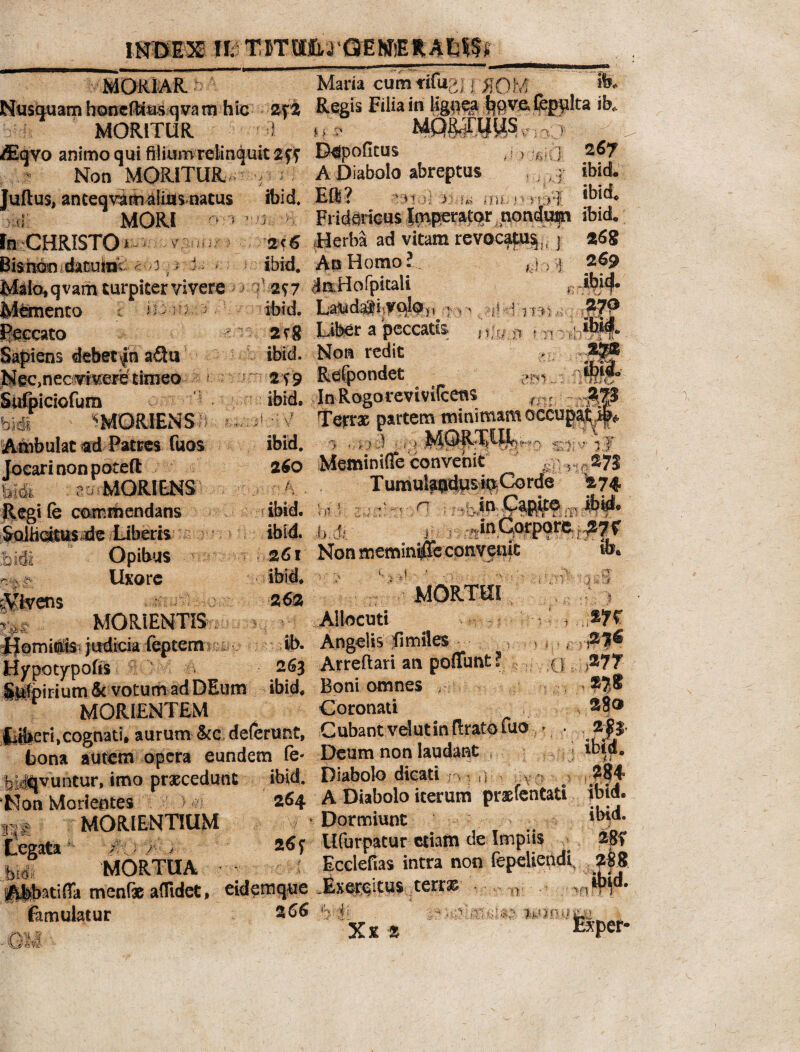 INDEX II. TITUL. GENERALIS.
MORIAR
Nusquam honestius qvam hic 252
MORITUR
Æqvo animo qui filium relinquit 255
Non MORITUR
Justus, anteqvam alius natus ibid.
MORI
In CHRISTO 256
Bis non datum ibid.
Malo, qvam turpiter vivere 257
Memento ibid.
Peccato 258
Sapiens debet in actu ibid.
Nec, nec vivere timeo 259
Suspiciosum ibid.
MORIENS
Ambulat ad Patres suos ibid.
Jocari non potest 260
MORIENS
Regi se commendans ibid.
Sollicitus de Liberis ibid.
Opibus 261
Uxore ibid.
Vivens 262
MORIENTIS
Hominis judicia septem ib.
Hypotyposis 263
Suspirium & votum ad DEum ibid.
MORIENTEM
Liberi, cognati, aurum &c. deserunt,
bona autem opera eundem se-
qvuntur, imo præcedunt ibid.
Non Morientes 264
MORIENTIUM
Legata 265
MORTUA
Abbatissa mensæ assidet, eidemque
famulatur 266
Maria cum risu ib.
Regis Filia in lignea bove sepulta ib.
MORTUUS
Depositus 267
A Diabolo abreptus ibid.
Est? ibid.
Fridericus Imperator nondum ibid.
Herba ad vitam revocatus 268
An Homo? 269
In Hospitali ibid.
Laudari volo 270
Liber a peccatis ibid.
Non redit 272
Respondet ibid.
In Rogo reviviscens 273
Terræ partem minimam occupat ib.
MORTUI
Meminisse convenit 273
Tumulandus in Corde 274
in Capite ibid.
in Corpore 275
Non meminisse convenit ib.
MORTUI
Allocuti 275
Angelis similes 276
Arrestari an possunt? 277
Boni omnes 278
Coronati 280
Cubant velut in strato suo 283
Deum non laudant ibid.
Diabolo dicati 284
A Diabolo iterum præsentati ibid.
Dormiunt ibid.
Usurpatur etiam de Impiis 285
Ecclesias intra non sepeliendi 288
Exercitus terræ ibid.
Xx 2
Exper-